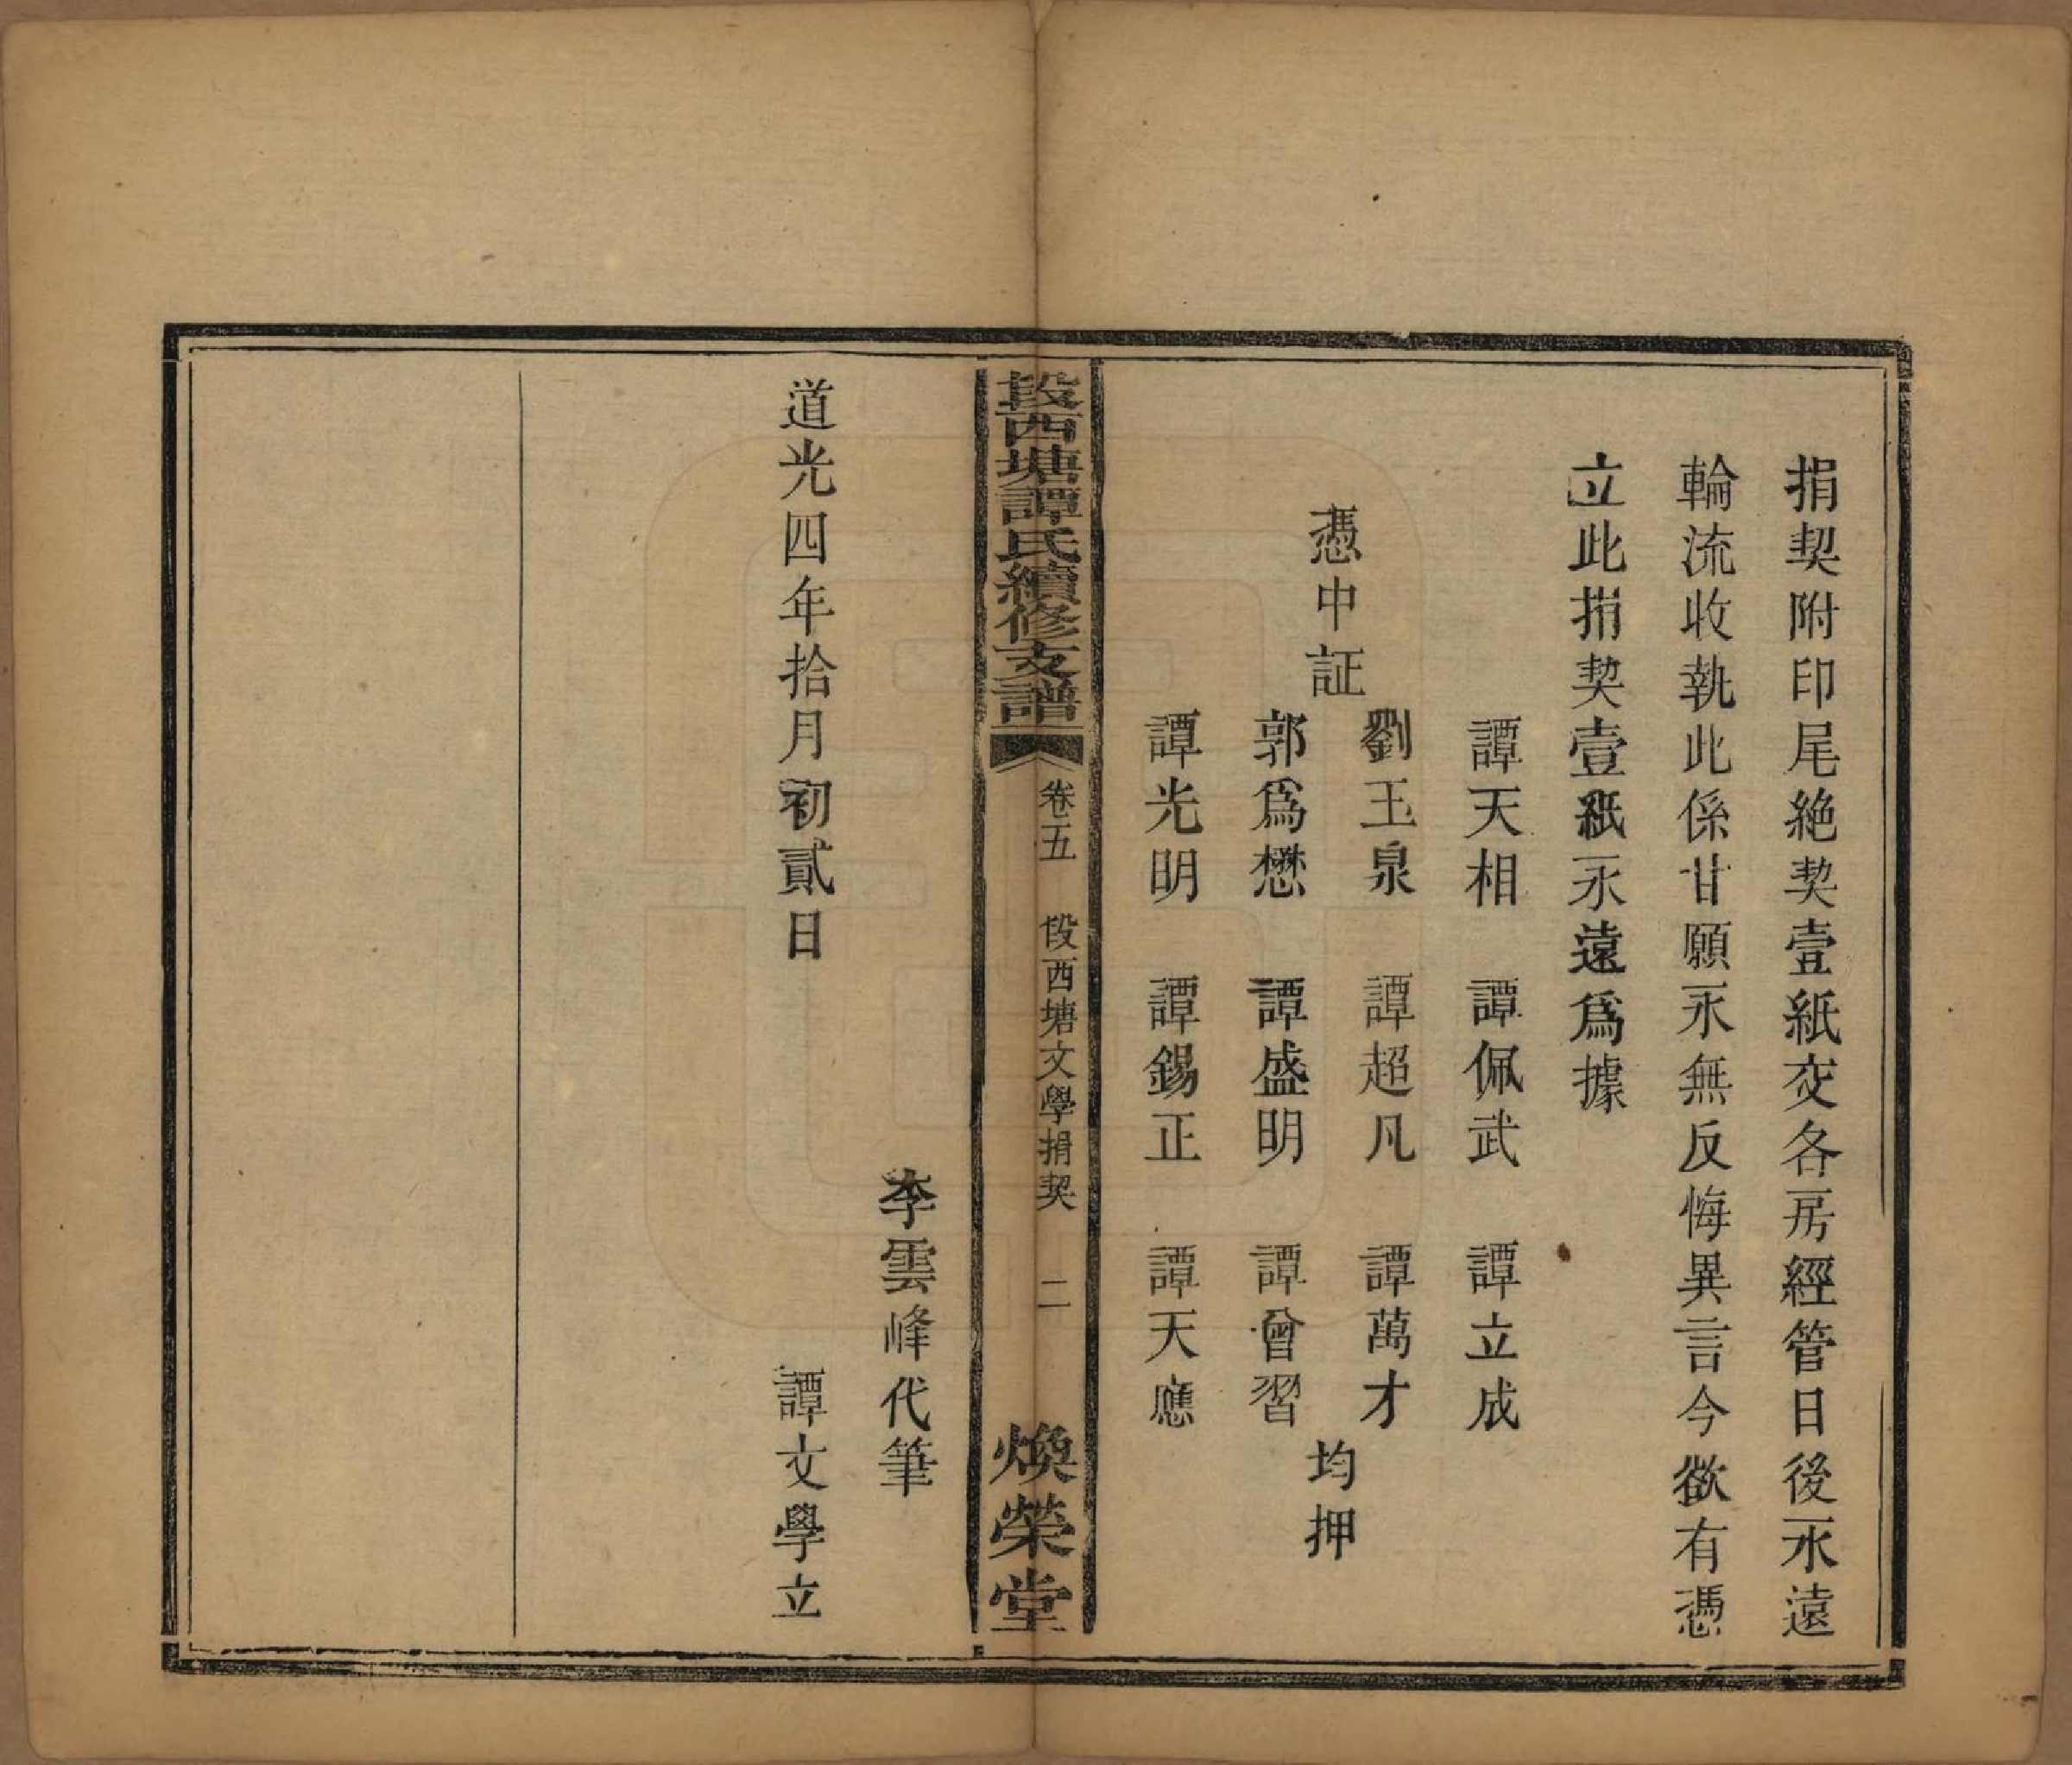 捐契附印尾絶契壹紙交各房經管日後永遠
輪流收執此係甘願永無反悔異言今欲有憑
立此捐契壹紙永遠爲據
譚天相　譚佩武　譚立成
劉玉泉　譚超凡　譚萬才
憑中証　均押
郭爲懋　譚盛明　譚曾習
譚光明　譚錫正　譚天應
段西塘譚氏續修支譜　卷五　段西塘文學捐契　二　煥榮堂
李雲峰代筆
道光四年拾月初貳日　譚文學立